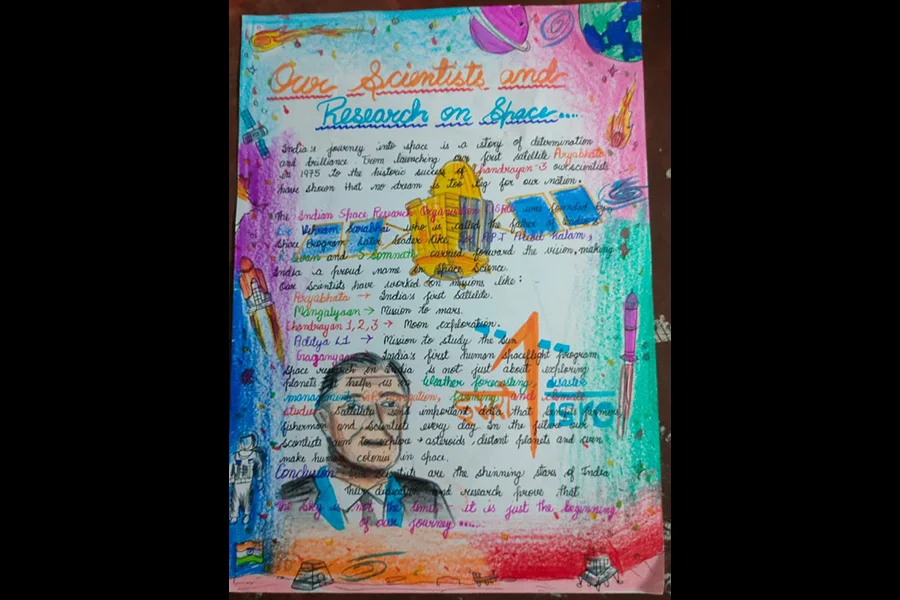 Our Scientists and
Research on Space....
India's journey into space is a story of determination
and brilliance. From launching our first satellite Aryabhata
in 1975 to the historic success of Chandrayan-3 our scientists
have shown that no dream is too big for our nation.
The Indian Space Research Organisation ISRO was founded by
Vikram Sarabhai who is called the father
Space Program. Later leaders like A.P.J Abdul Kalam,
K Sivan and S Somnath carried forward the vision, making
India a proud name in Space Science.
Our Scientists have worked on missions like:
Aryabhata → India's first Satellite.
Mangalyaan → Mission to mars.
Chandrayan 1,2,3 → Moon exploration.
Aditya L1 → Mission to study the sun
Gaganyaan → India's first human spaceflight program
Space research in India is not just about exploring
planets it helps us Weather forecasting, disaster
management, GPS navigation, farming and climate
studies. Satellite important data that
fishermen and scientists every day. In the future our
scientists aim to explore asteroids distant planets and even
make human colonies in space.
Conclusion scientists are the shinning stars of India
Their dedication and research prove that
the sky is not the limit it is just the beginning
of our journey.....
इसरो isro